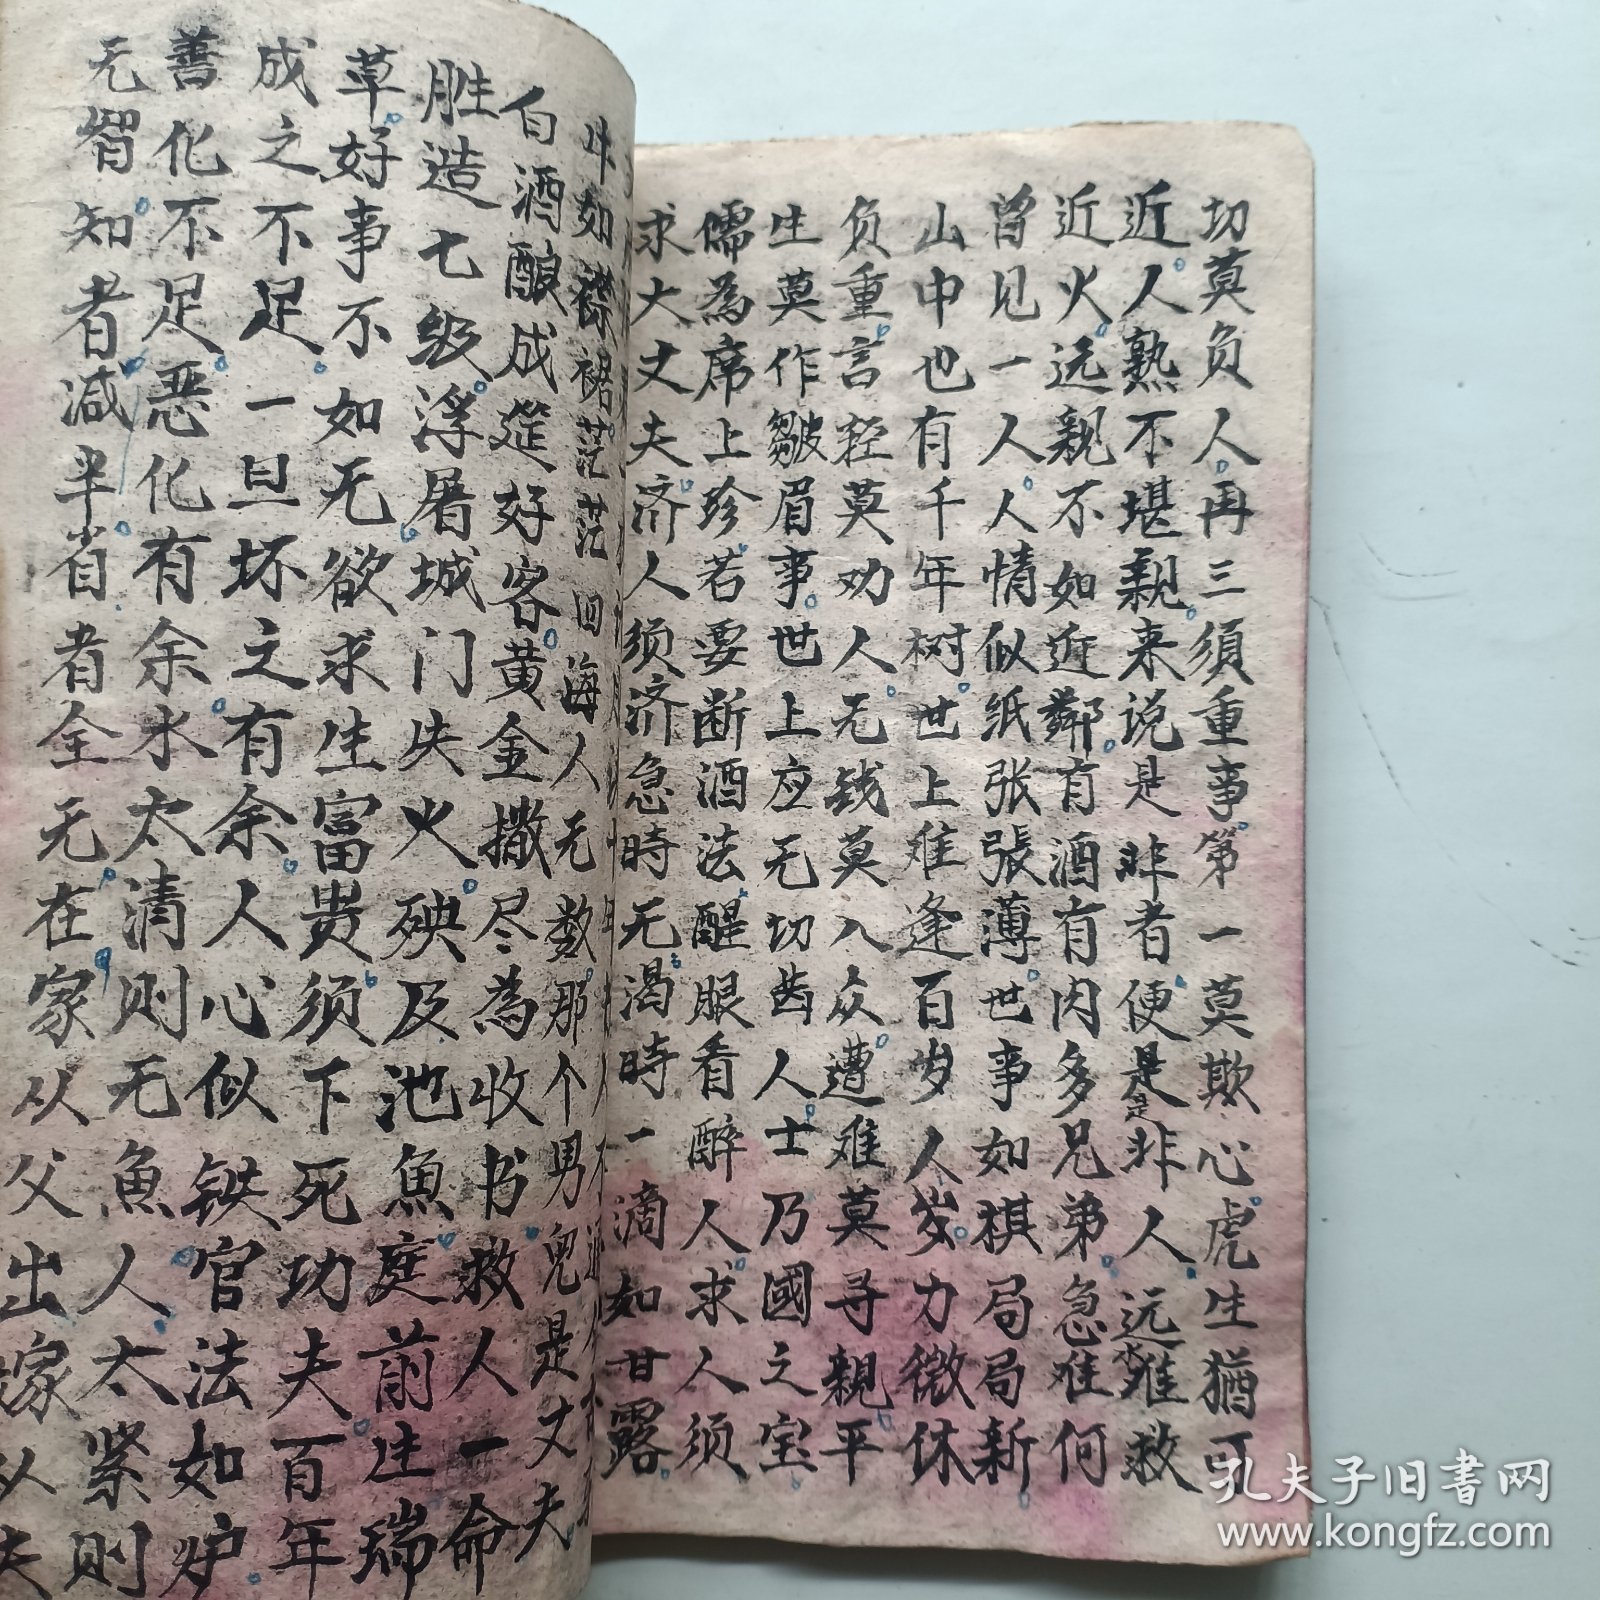 切莫负人再三须重事第一莫欺心虎生猶可
近人熟不堪親来说是非者便是是非人远水难救
近火远親不如近鄰有酒有肉多兄弟急难何
曾见一人人情似纸张張薄世事如棋局局新
山中也有千年树世上难逢百岁人岁力微休
负重言轻莫劝人无钱莫入众遭难莫寻親平
生莫作皺眉事世上应无切齿人士乃國之宝
儒為席上珍若要断酒法醒眼看醉人求人须
求大丈夫济人须济急時无渴時一滴如甘露
牛如襟裾茫茫四海人无数那个男儿是丈夫
白酒酿成筵好客黄金撒尽為收书救人一命
胜造七级浮屠城门失火殃及池魚庭前生瑞
草好事不如无欲求生富贵须下死功夫百年
成之不足一旦坏之有余人心似铁官法如炉
善化不足恶化有余水太清则无魚人太紧则
无智知者减半省者全无在家从父出嫁从夫
孔夫子旧书网
www.kongfz.com